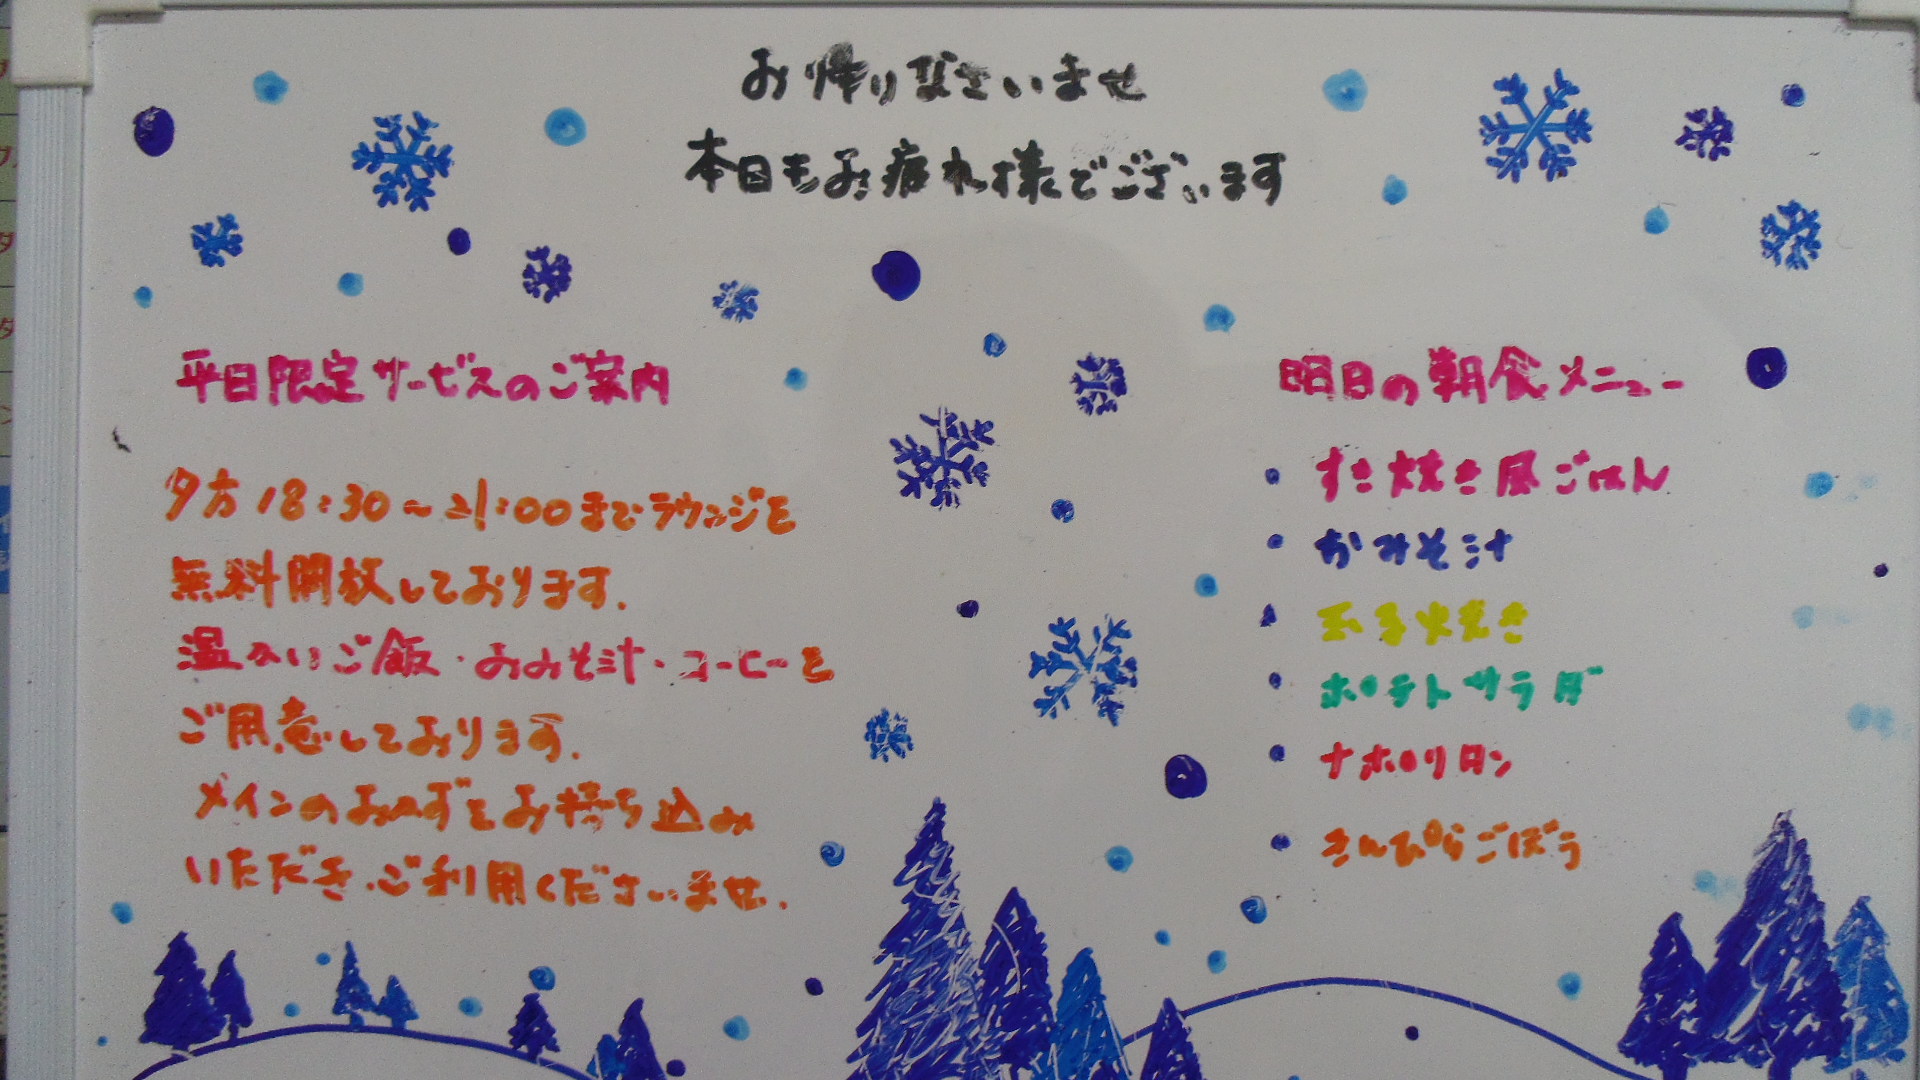 お帰りなさいませ
本日もお疲れ様でございます
平日限定サービスのご案内
夕方18:30~21:00までラウンジを
無料開放しております.
温かいご飯・おみそ汁・コーヒーを
ご用意しております.
メインのおかずをお持ち込み
いただき、ご利用くださいませ.
明日の朝食メニュー
・すき焼き風ごはん
・おみそ汁
・玉子焼き
・ポテトサラダ
・ナポリタン
・きんぴらごぼう